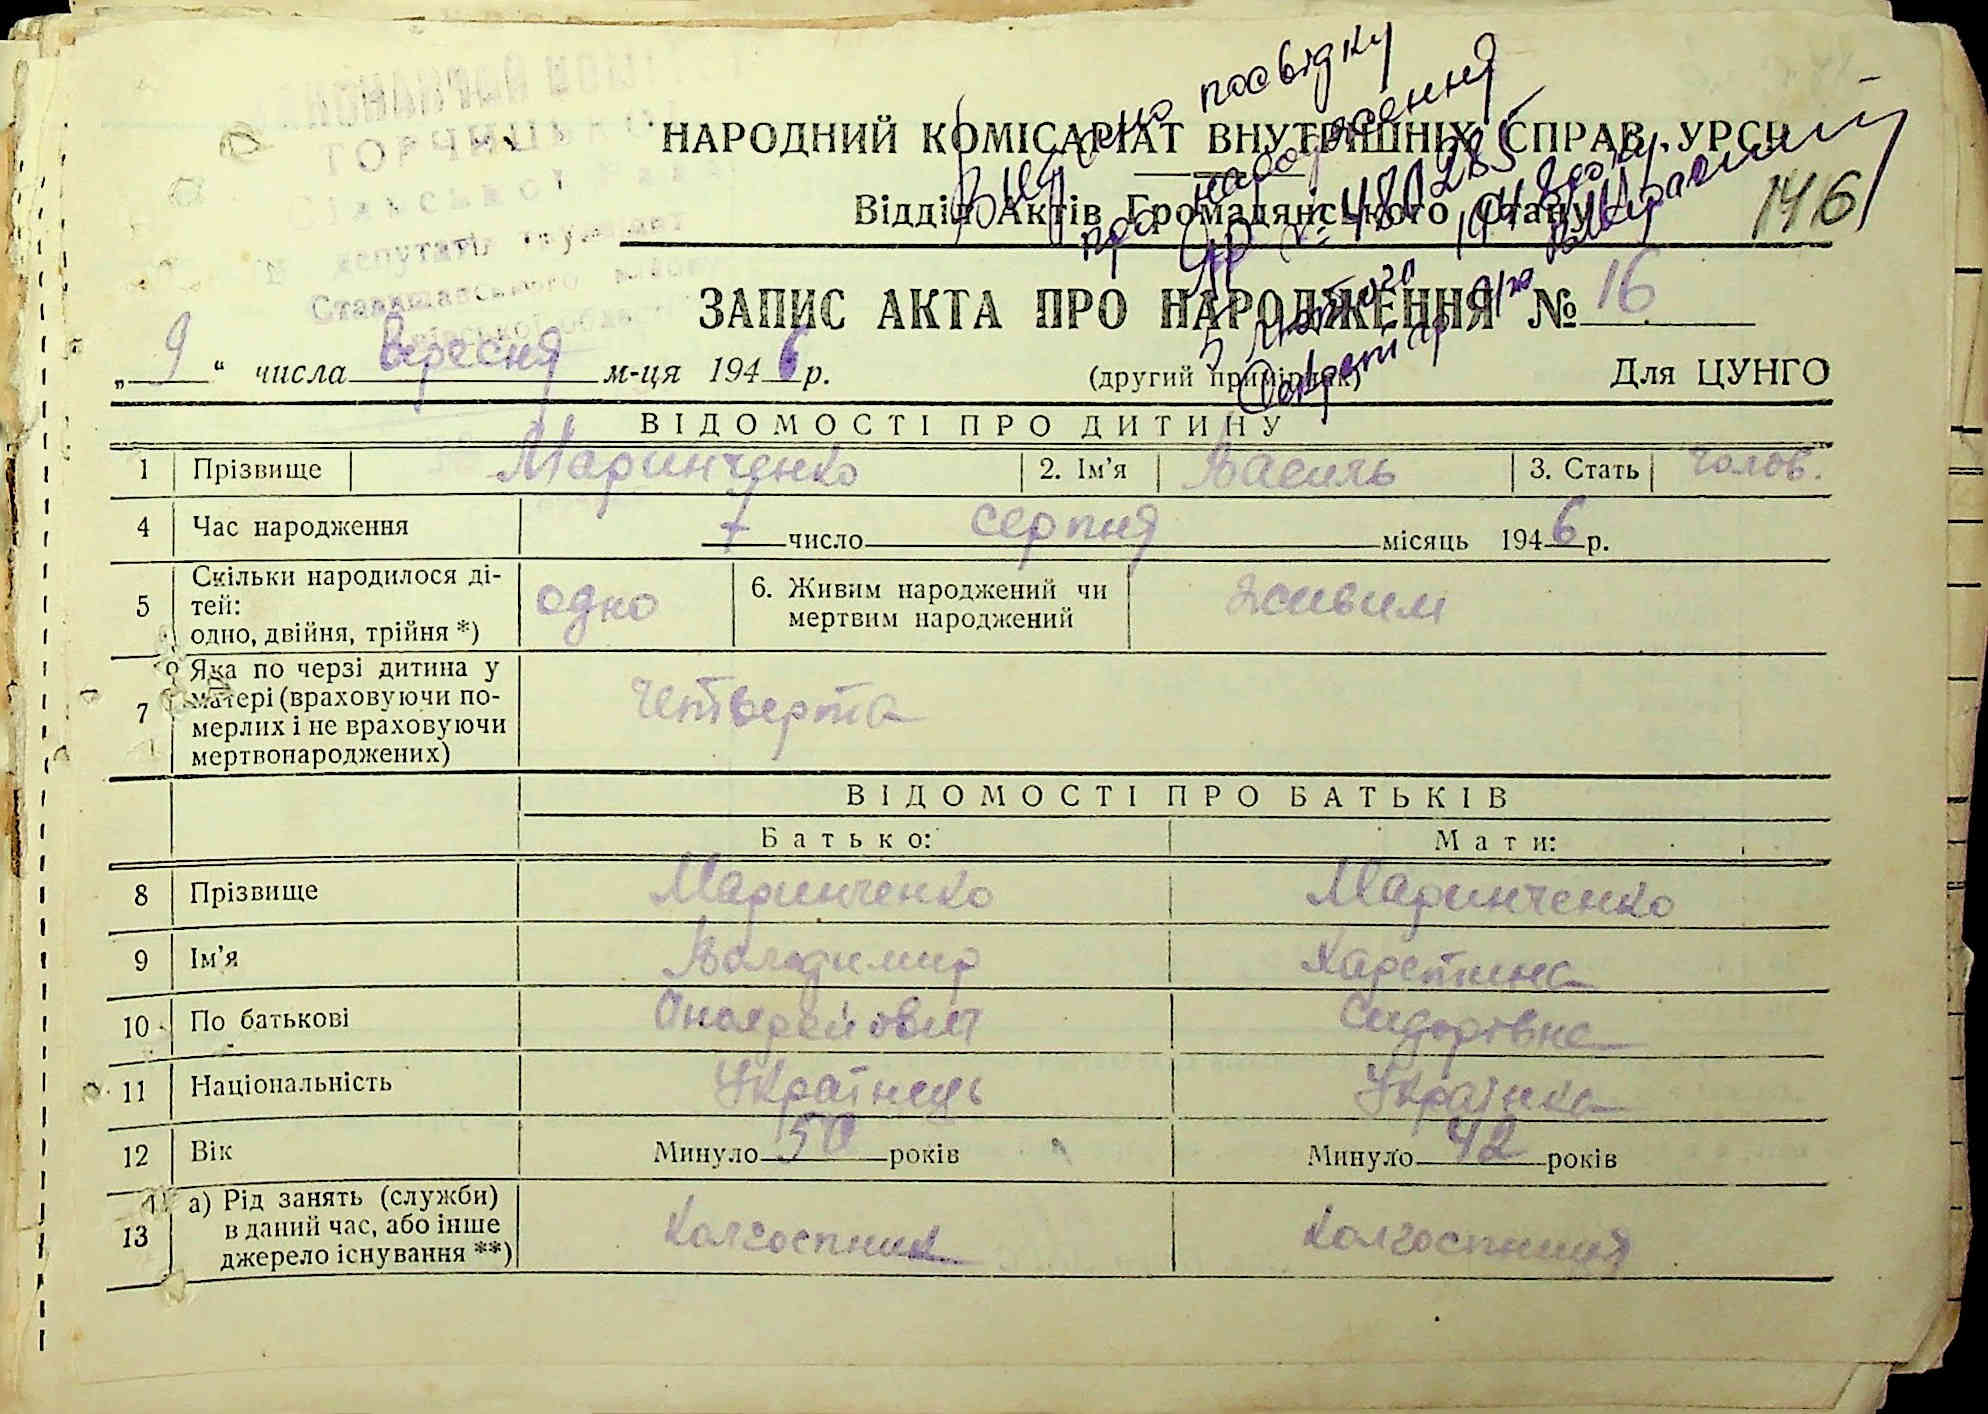 Видано посвідку
про народження
ЯР № 480285
5 лютого 1948 року
Секретар с/р
НАРОДНИЙ КОМІСАРІАТ ВНУТРІШНІХ СПРАВ УРСР
Відділ Актів Громадянського Стану
146
ЗАПИС АКТА ПРО НАРОДЖЕННЯ № 16
„ 9 “ числа Вересня м-ця 1946 р. (другий примірник) Для ЦУНГО
ВІДОМОСТІ ПРО ДИТИНУ
1 Прізвище Маринченко 2. Ім’я Василь 3. Стать Чолов.
4 Час народження 7 число серпня місяць 1946 р.
5 Скільки народилося ді-
тей:
одно, двійня, трійня *) одно 6. Живим народжений чи
мертвим народжений живим
7 Яка по черзі дитина у
матері (враховуючи по-
мерлих і не враховуючи
мертвонароджених) Четверта
ВІДОМОСТІ ПРО БАТЬКІВ
Батько: Мати:
8 Прізвище Маринченко Маринченко
9 Ім’я Володимир Харетина
10 По батькові Оноярейович Сидорівна
11 Національність Українець Українка
12 Вік Минуло 50 років Минуло 42 років
13 а) Рід занять (служби)
в даний час, або інше
джерело існування **) Колгоспник Колгоспниця